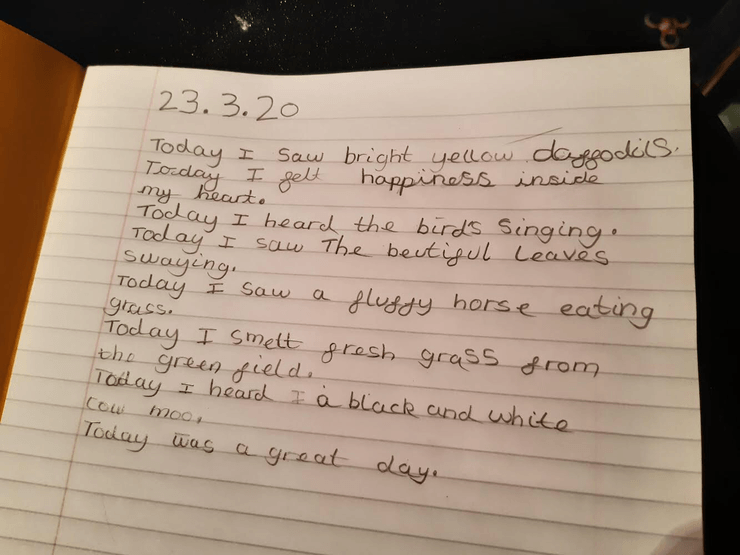 23.3.20
Today I saw bright yellow daffodils.
Today I felt happiness inside
my heart.
Today I heard the birds singing.
Today I saw The beutiful leaves
swaying.
Today I saw a fluffy horse eating
grass.
Today I smelt fresh grass from
the green field.
Today I heard I a black and white
cow moo.
Today was a great day.